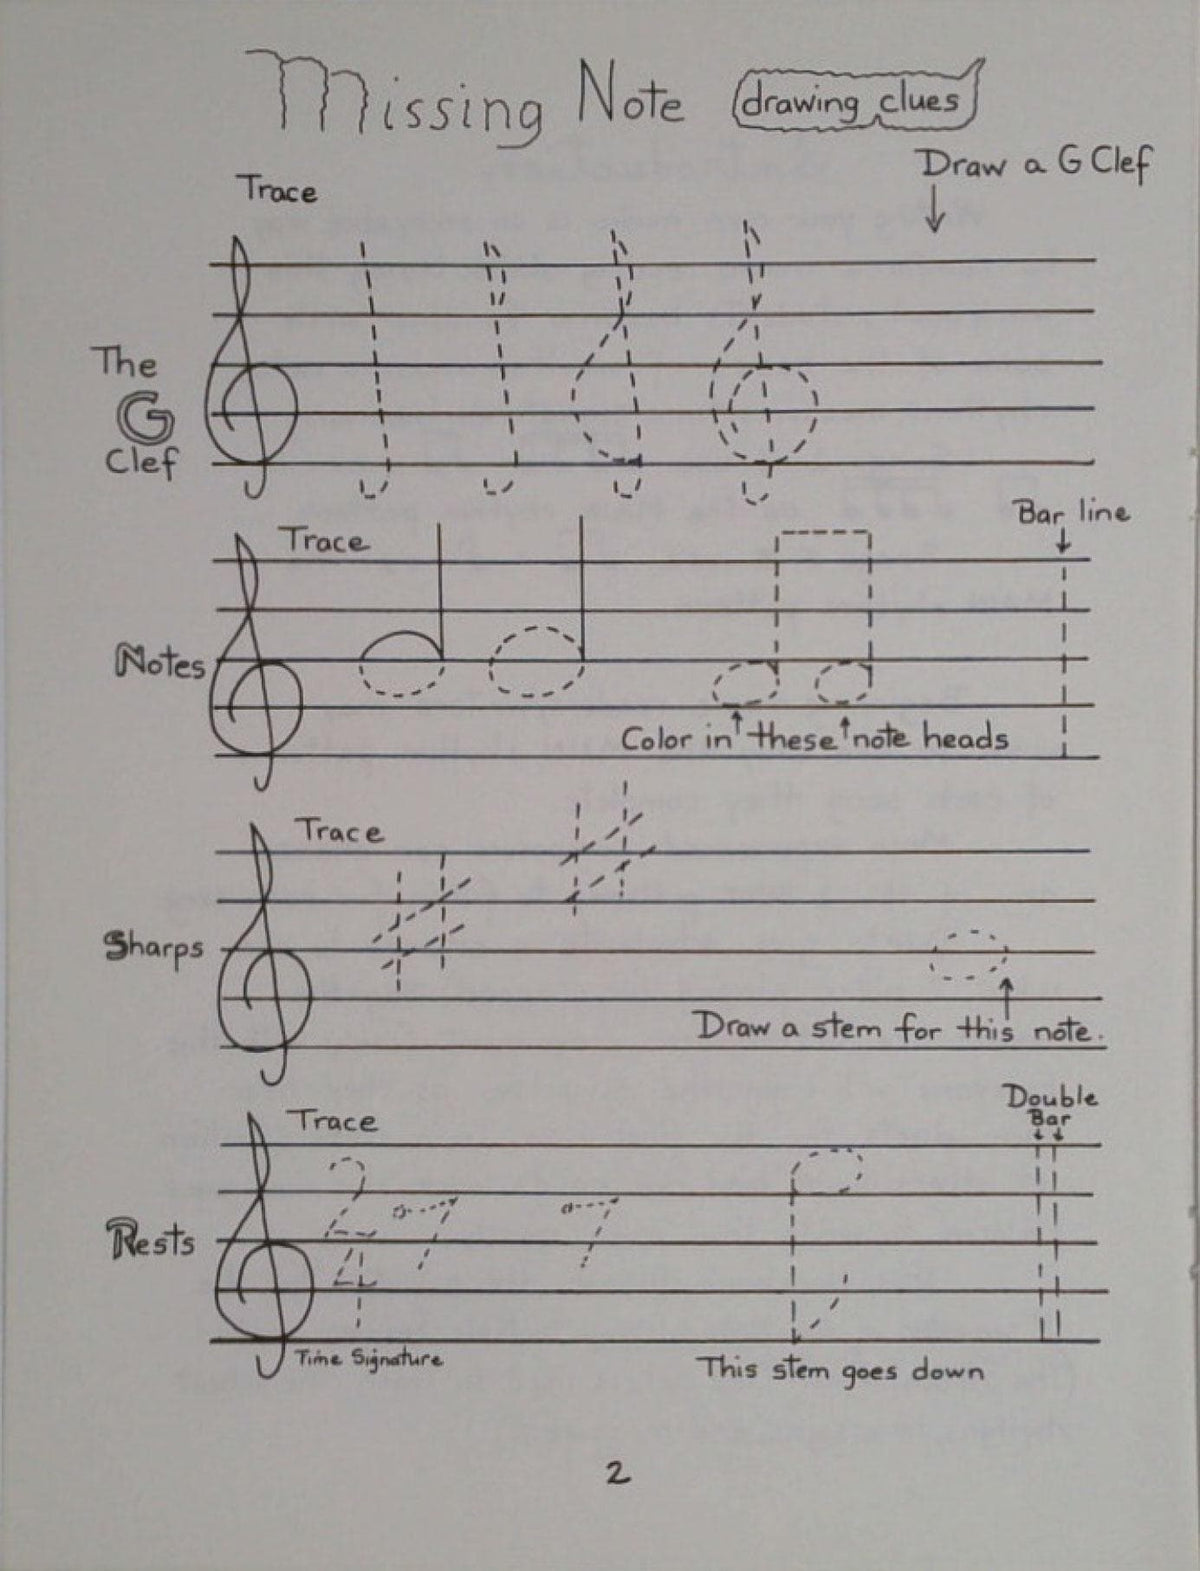 Missing Note drawing clues
Draw a G Clef
Trace
The
G
Clef
Bar line
Trace
Notes
Color in these note heads
Trace
Sharps
Draw a stem for this note.
Double
Bar
Trace
2
4
Rests
Time Signature
This stem goes down
2